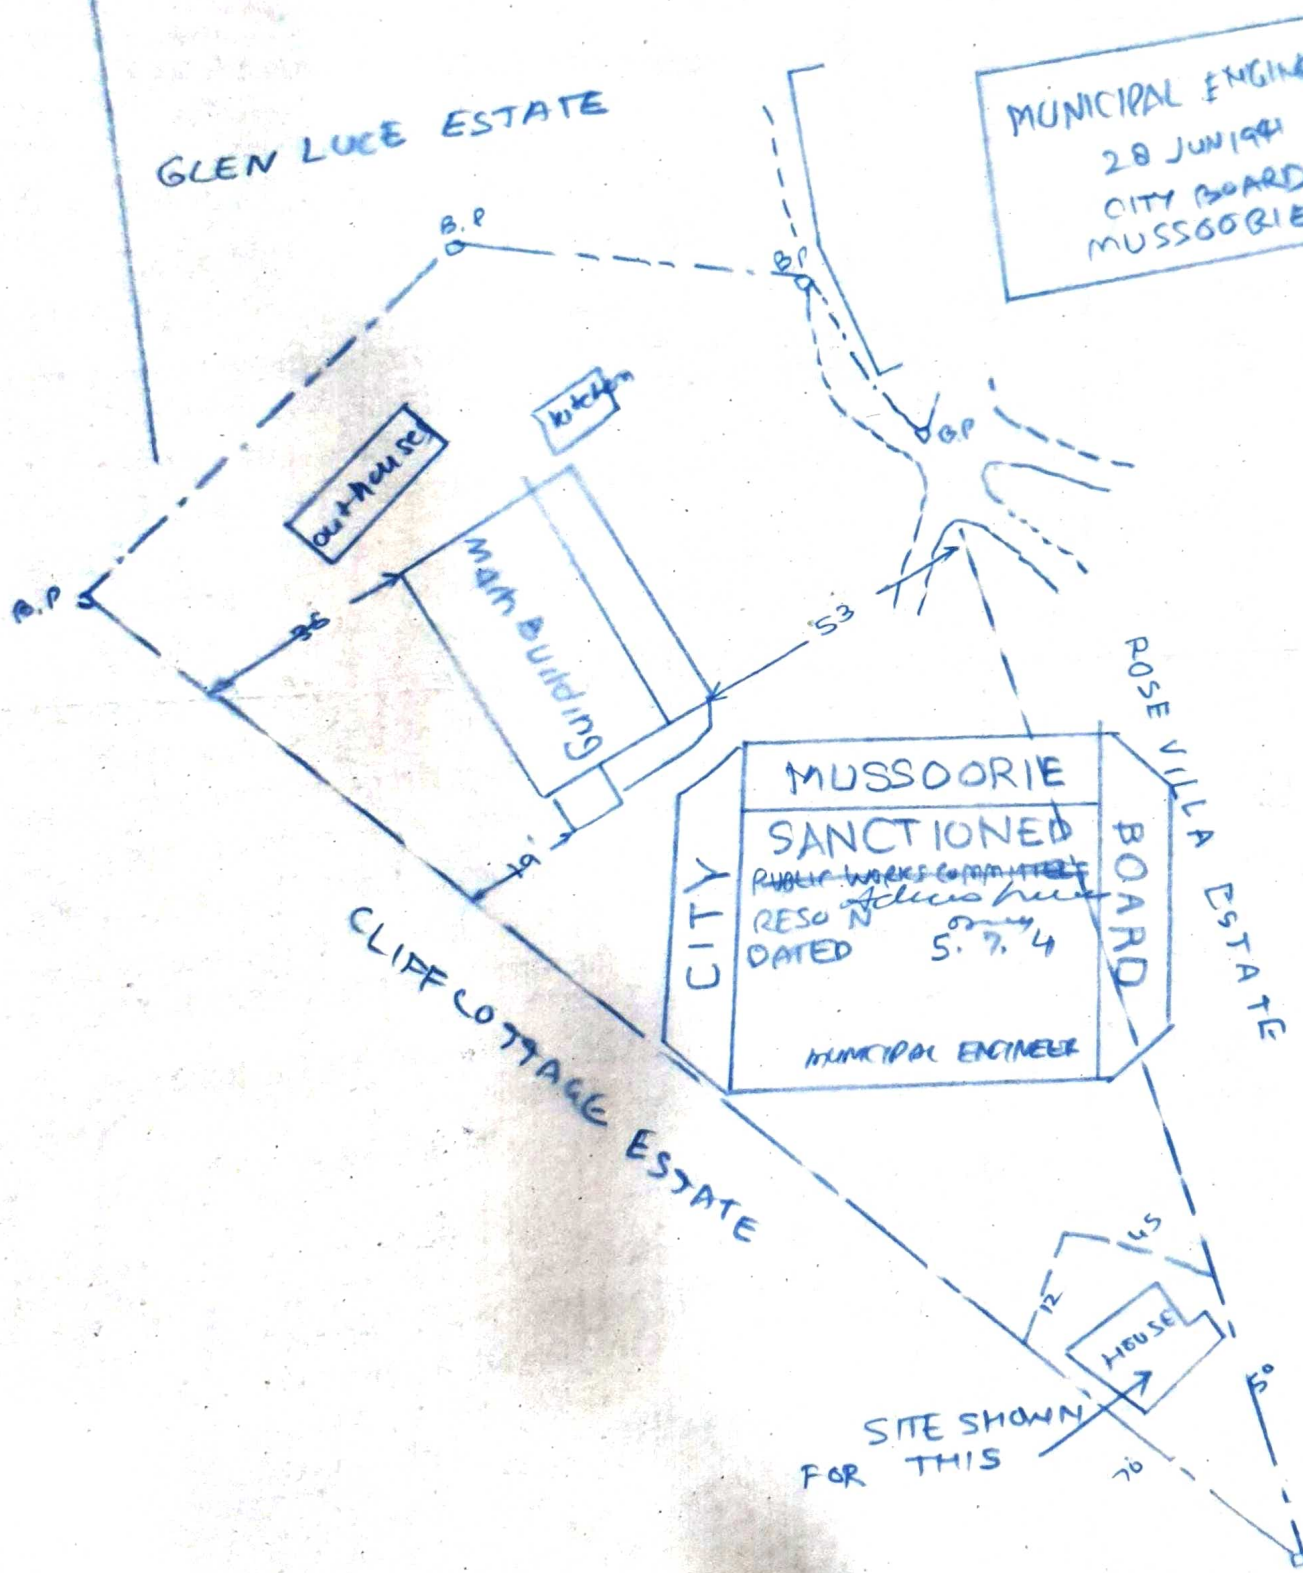 GLEN LUCE ESTATE
MUNICIPAL ENGINE
28 JUN 1941
CITY BOARD
MUSSOORIE
B.P
B.P
B.P
B.P
kitchen
outhouse
Main Building
36
53
19'
ROSE VILLA ESTATE
CLIFF COTTAGE ESTATE
MUSSOORIE
CITY
BOARD
SANCTIONED
PUBLIC WORKS COMMITTEE'S
RESO N
DATED 5. 7. 4
MUNICIPAL ENGINEER
45
12
HOUSE
50
SITE SHOWN
FOR THIS
70